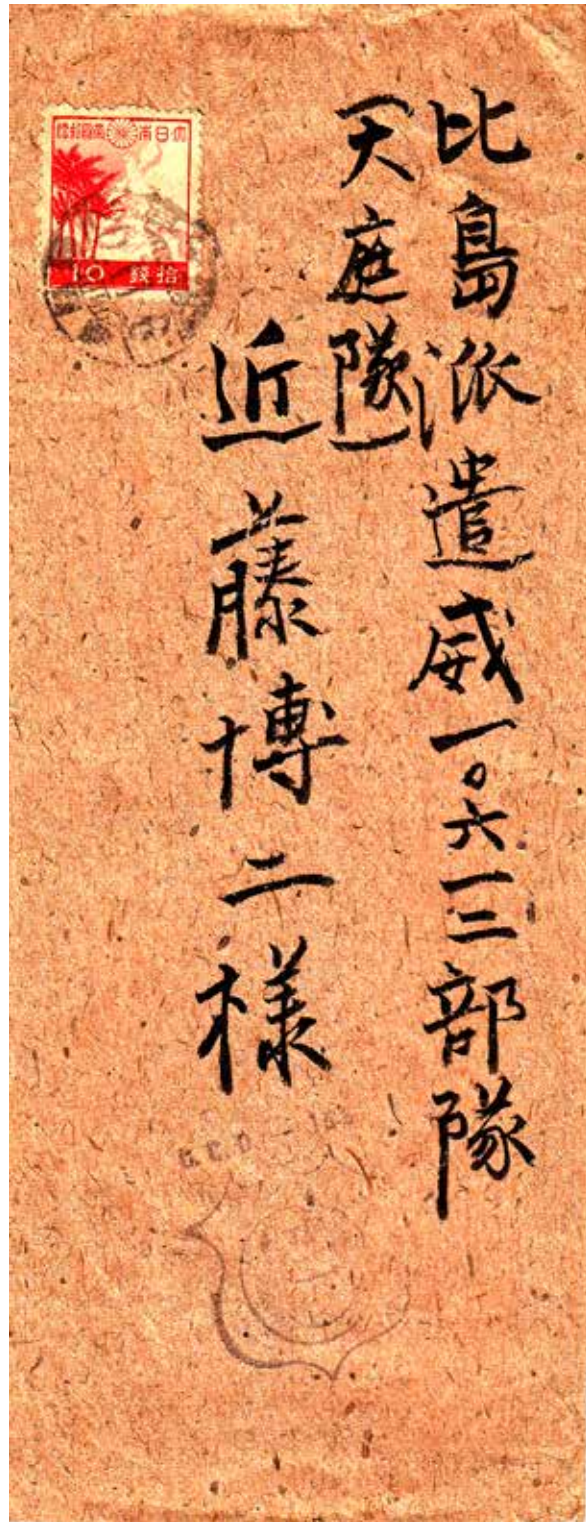 比島派遣威一〇六一二部隊
天庭隊
近藤博二様
大日本帝國郵便
10 拾錢